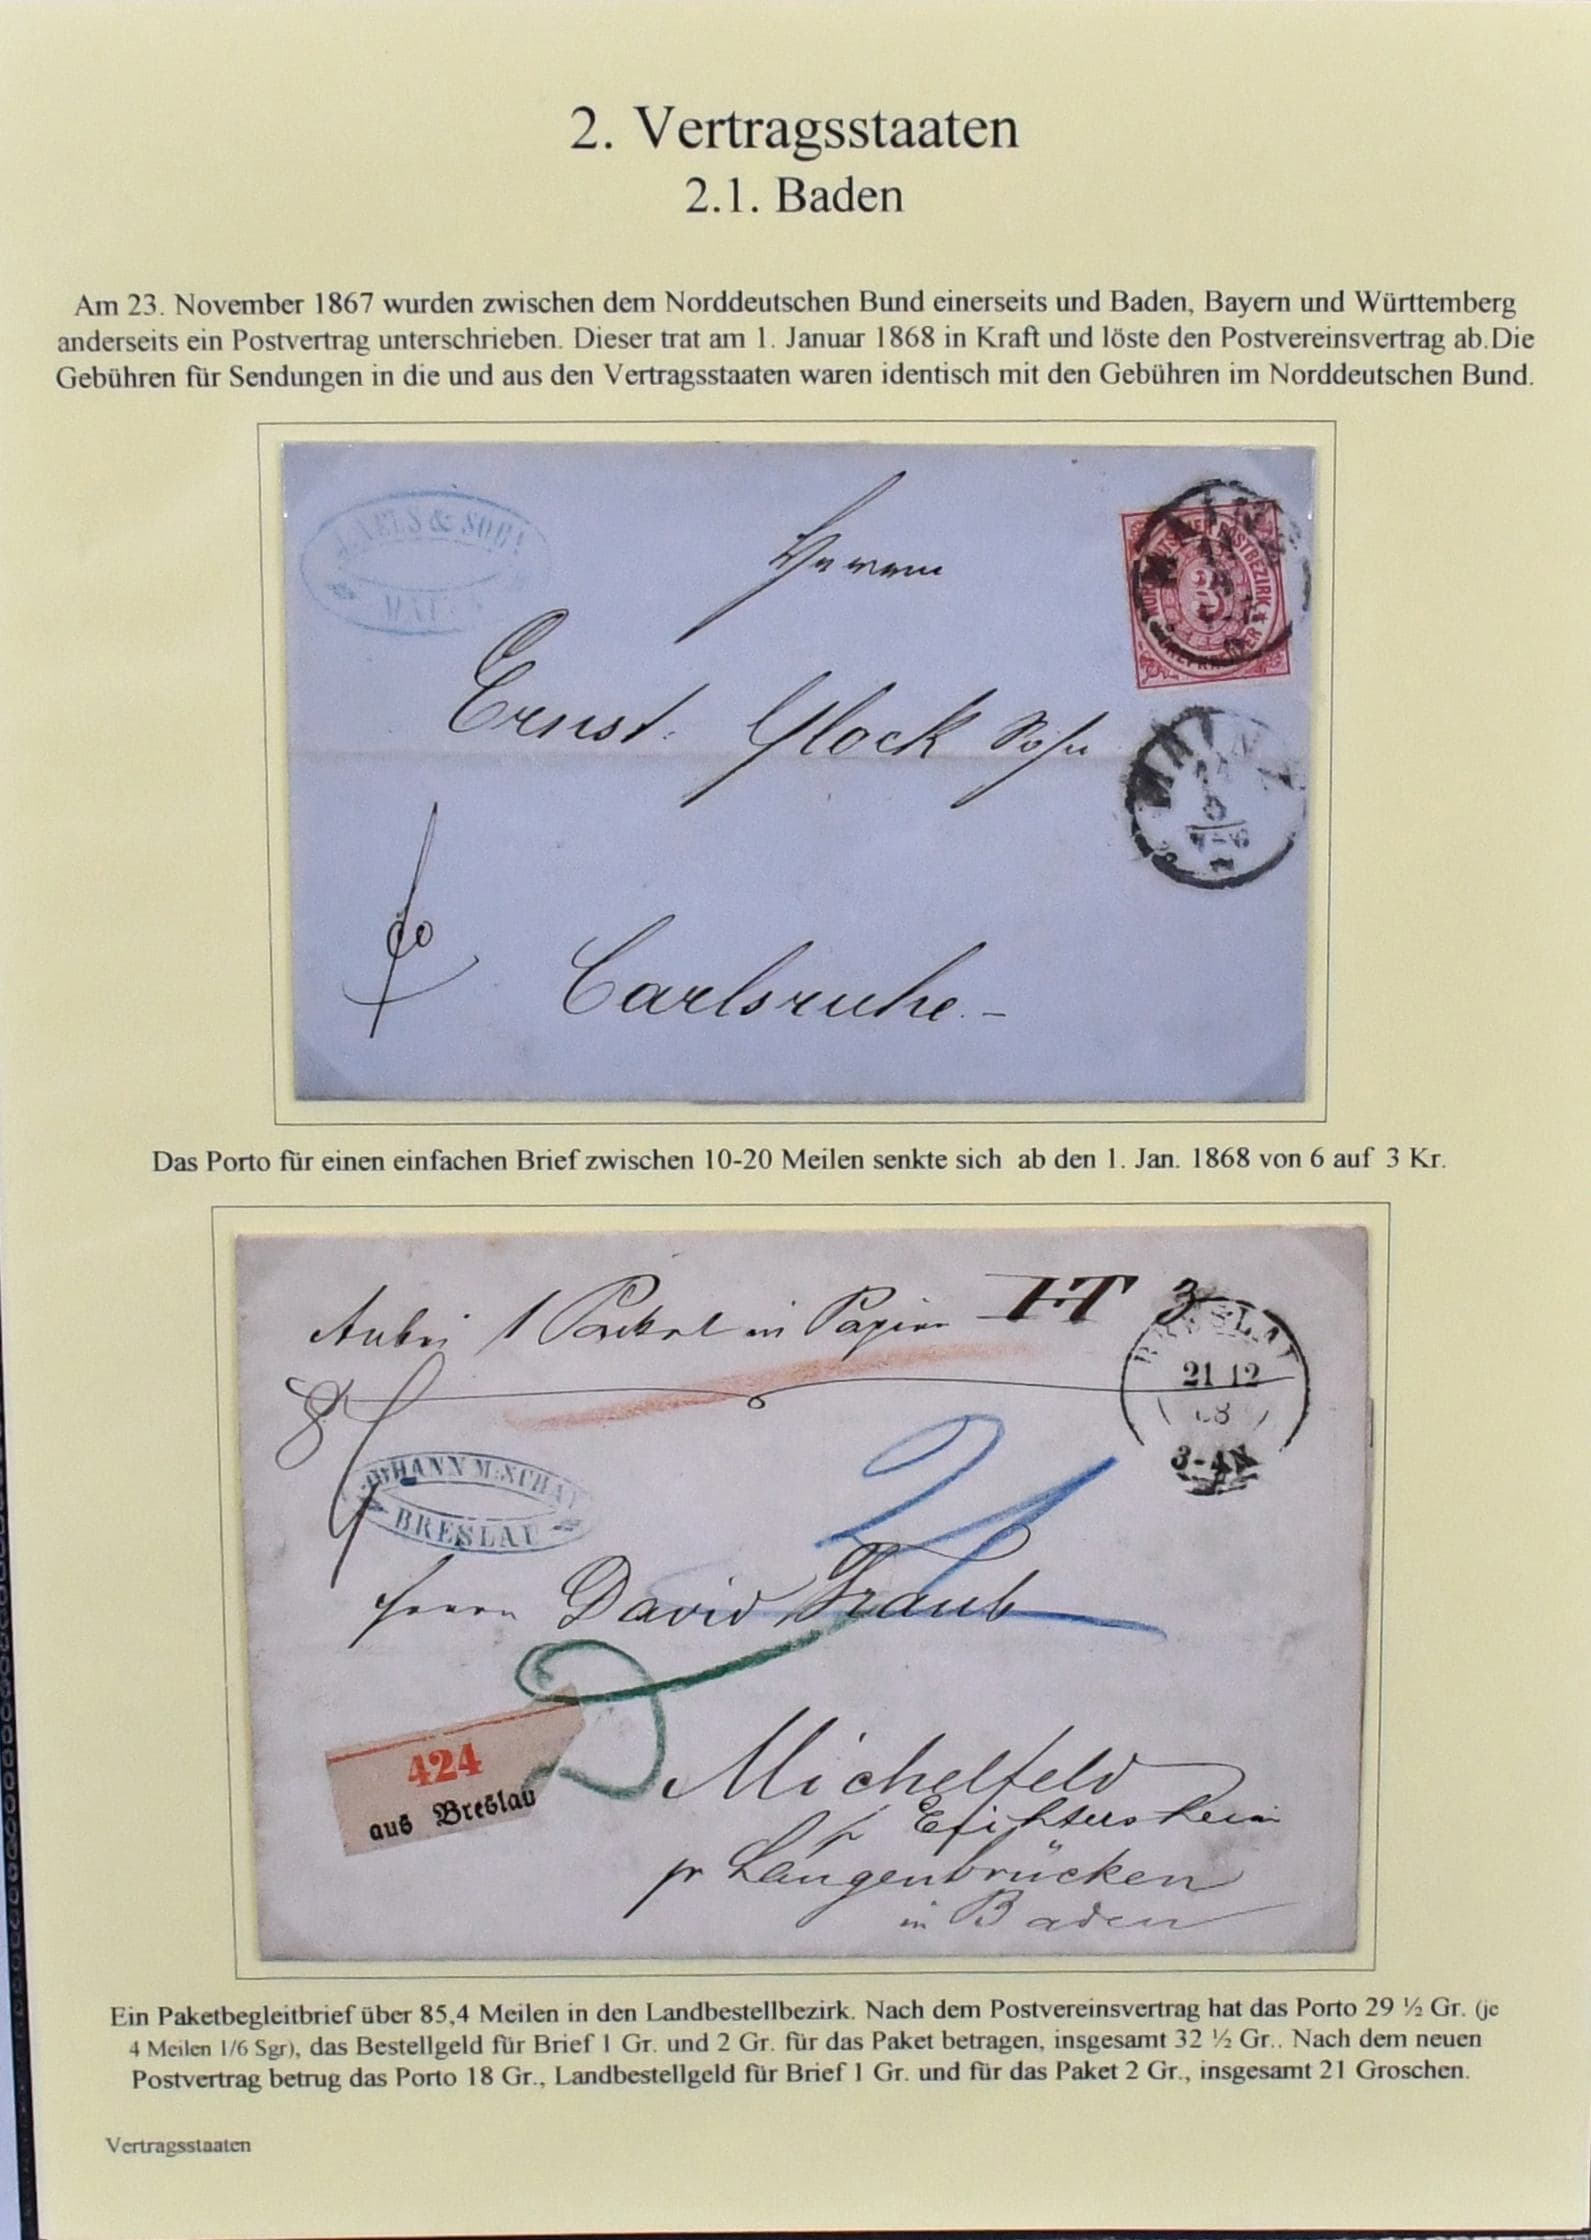 2. Vertragsstaaten
2.1. Baden
Am 23. November 1867 wurden zwischen dem Norddeutschen Bund einerseits und Baden, Bayern und Württemberg
anderseits ein Postvertrag unterschrieben. Dieser trat am 1. Januar 1868 in Kraft und löste den Postvereinsvertrag ab.Die
Gebühren für Sendungen in die und aus den Vertragsstaaten waren identisch mit den Gebühren im Norddeutschen Bund.
Herrn
NORDDEUTSCHER POSTBEZIRK
3
DREI KREUZER
Ernst Glock Sohn
MAINZ
Carlsruhe.-
Das Porto für einen einfachen Brief zwischen 10-20 Meilen senkte sich ab den 1. Jan. 1868 von 6 auf 3 Kr.
Anbei 1 Packet in Papier
BRESLAU
21 12
68
3-4N
JOHANN M. SCHAY
BRESLAU
21
Herrn David Traub
424
aus Breslau
Michelfeld
pr Langenbrücken
in Baden
Ein Paketbegleitbrief über 85,4 Meilen in den Landbestellbezirk. Nach dem Postvereinsvertrag hat das Porto 29 ½ Gr. (je
4 Meilen 1/6 Sgr), das Bestellgeld für Brief 1 Gr. und 2 Gr. für das Paket betragen, insgesamt 32 ½ Gr.. Nach dem neuen
Postvertrag betrug das Porto 18 Gr., Landbestellgeld für Brief 1 Gr. und für das Paket 2 Gr., insgesamt 21 Groschen.
Vertragsstaaten